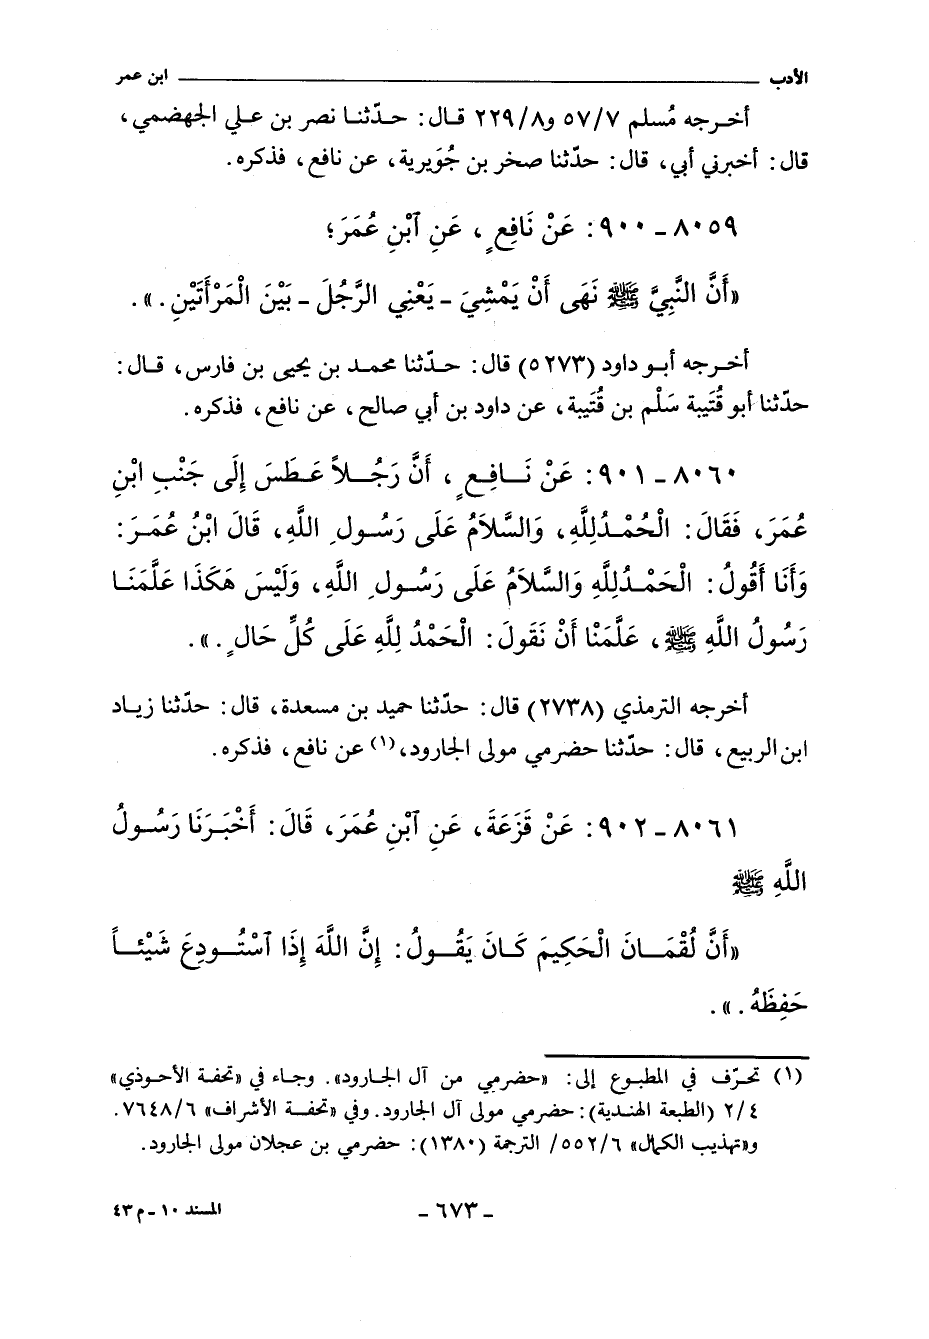 الأدب ابن عمر
أخرجه مُسلم ٥٧/٧ و٢٢٩/٨ قال: حدّثنا نصر بن علي الجهضمي،
قال: أخبرني أبي، قال: حدّثنا صخر بن جُوَيرية، عن نافع، فذكره.
٨٠٥٩ - ٩٠٠: عَنْ نَافِعٍ، عَنِ ٱبْنِ عُمَرَ؛
«أَنَّ النَّبِيَّ ﷺ نَهَى أَنْ يَمْشِيَ - يَعْنِي الرَّجُلَ - بَيْنَ الْمَرْأَتَيْنِ.».
أخرجه أبو داود (٥٢٧٣) قال: حدّثنا محمد بن يحيى بن فارس، قال:
حدّثنا أبو قُتَيبة سَلْم بن قُتَيبة، عن داود بن أبي صالح، عن نافع، فذكره.
٨٠٦٠ - ٩٠١: عَنْ نَافِعٍ، أَنَّ رَجُلاً عَطَسَ إِلَى جَنْبِ ابْنِ
عُمَرَ، فَقَالَ: الْحُمْدُلِلَّهِ، وَالسَّلاَمُ عَلَى رَسُولِ اللَّهِ، قَالَ ابْنُ عُمَرَ:
وَأَنَا أَقُولُ: الْحَمْدُلِلَّهِ وَالسَّلاَمُ عَلَى رَسُولِ اللَّهِ، وَلَيْسَ هَكَذَا عَلَّمَنَا
رَسُولُ اللَّهِ ﷺ، عَلَّمَنْا أَنْ نَقُولَ: الْحَمْدُ لِلَّهِ عَلَى كُلِّ حَالٍ.».
أخرجه الترمذي (٢٧٣٨) قال: حدّثنا حميد بن مسعدة، قال: حدّثنا زياد
ابن الربيع، قال: حدّثنا حضرمي مولى الجارود،(١) عن نافع، فذكره.
٨٠٦١ - ٩٠٢: عَنْ قَزَعَةَ، عَنِ ٱبْنِ عُمَرَ، قَالَ: أَخْبَرَنَا رَسُولُ
اللَّهِ ﷺ
«أَنَّ لُقْمَانَ الْحَكِيمَ كَانَ يَقُولُ: إِنَّ اللَّهَ إِذَا ٱسْتُودِعَ شَيْئاً
حَفِظَهُ.».
(١) تحرّف في المطبوع إلى: «حضرمي من آل الجارود». وجاء في «تحفة الأحوذي»
٢/٤ (الطبعة الهندية): حضرمي مولى آل الجارود. وفي «تحفة الأشراف» ٧٦٤٨/٦.
و«تهذيب الكمال» ٥٥٢/٦/ الترجمة (١٣٨٠): حضرمي بن عجلان مولى الجارود.
- ٦٧٣ - المسند ١٠ - م ٤٣